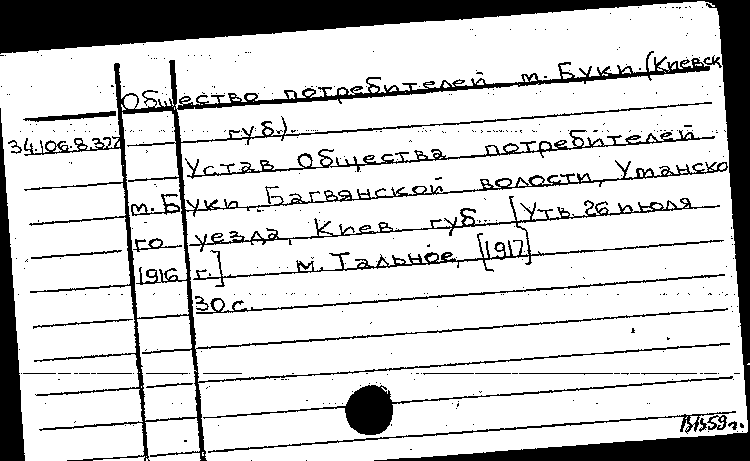 Общество потребителей м. Буки. (Киевск
губ.).
34.106.8.377
Устав Общества потребителей
м. Буки, Багвянской волости, Уманско
го уезда, Киев. губ. [Утв. 26 июля
1916 г.]. м. Тальное, [1917].
30 с.